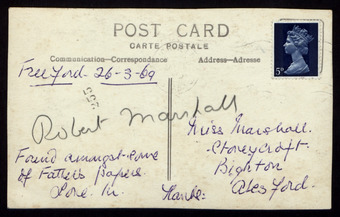 POST CARD
CARTE POSTALE
Communication—Correspondence
Address—Adresse
Freeford 26-3-69
5D
355
Robert Marshall
Found amongst some
of Fathers papers
Love
Miss Marshall.
Stoneycroft
Bighton
Alresford.
Hants.